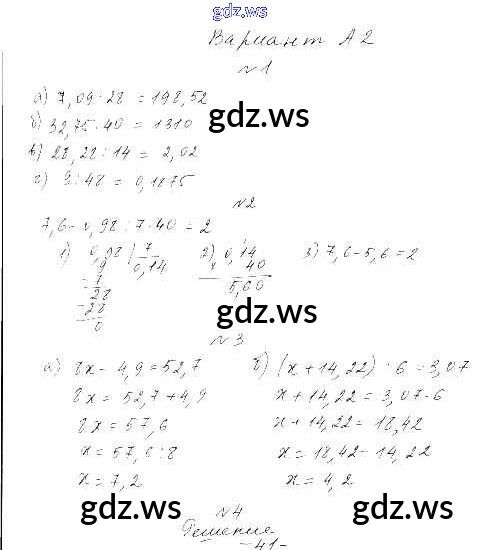 gdz.ws
Вариант А2
№1
а) 7,09·28 = 198,52
б) 32,75·40 = 1310
в) 28,28:14 = 2,02
г) 9:48 = 0,1875
gdz.ws
№2
7,6-0,98:7·40 = 2
1) 0,98 | 7
0,14
9
-7
28
-28
0
2) 0,14
× 40
5,60
3) 7,6-5,6=2
gdz.ws
№3
а) 8x - 4,9 = 52,7
8x = 52,7 + 4,9
8x = 57,6
x = 57,6:8
x = 7,2
б) (x+14,22) : 6 = 3,07
x+14,22 = 3,07·6
x+14,22 = 18,42
x = 18,42-14,22
x = 4,2
gdz.ws
gdz.ws
№4
Решение
-41-
gdz.ws gdz.ws